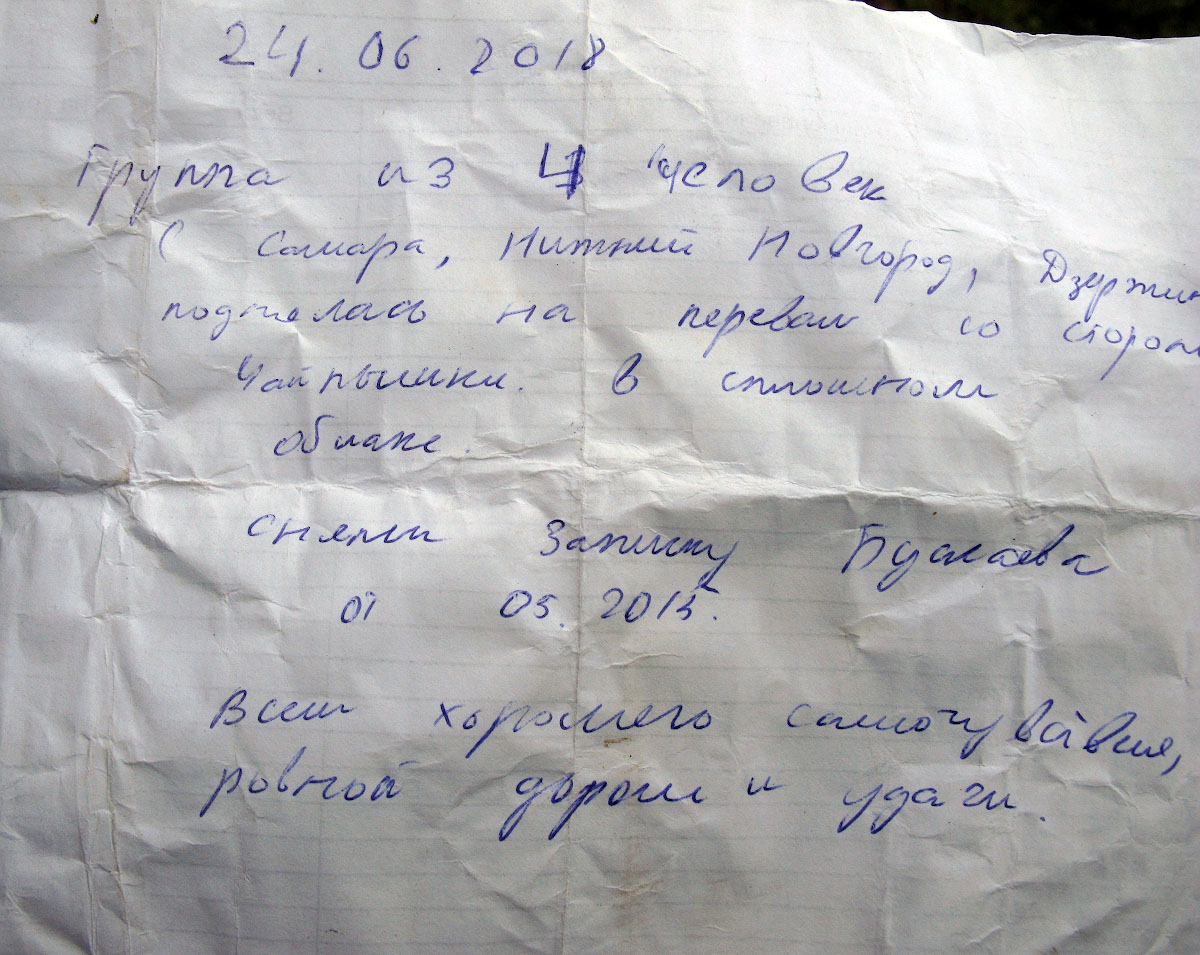 24.06.2018
Группа из 4 человек
( Самара, Нижний Новгород, Дзержин
поднялась на перевал со сторон
в сплошном
облаке.
сняли записку Буслаева
от 05.2015.
Всем хорошего самочувствия,
ровной дороги и удачи.